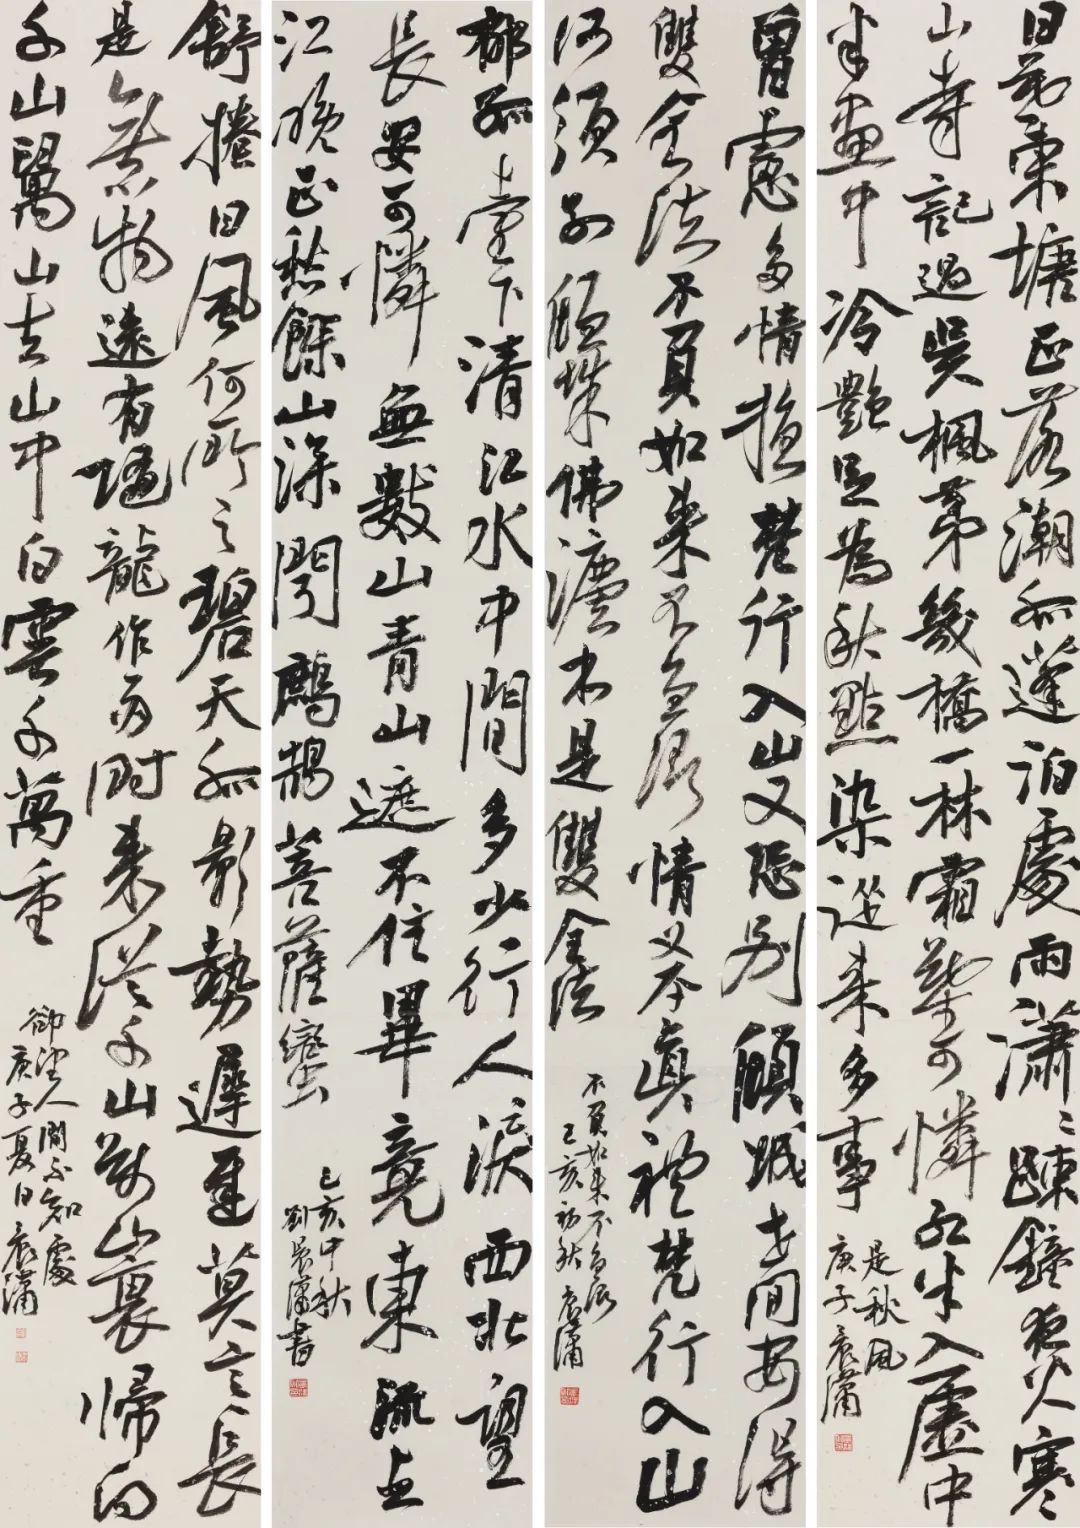 日莫東塘正落潮孤蓬泊處雨瀟瀟疎鐘夜火寒
山寺記過吳楓第幾橋一林霜葉可憐紅半入虛中
半畫中冷艷足為秋點染從來多事
是秋風
庚子辰瀟
曾慮多情損梵行入山又恐別傾城世間安得
雙全法不負如来不負卿情义本真禮梵行入山
何須別傾城佛灋本是雙全法
不負如来不負卿
己亥初秋辰瀟
郁孤臺下清江水中間多少行人淚西北望
長安可憐無數山青山遮不住畢竟東流去
江晚正愁餘山深聞鷓鴣菩薩蠻
己亥中秋
劉辰瀟書
舒捲因風何所之碧天孤影勢遲遲莫言長
是無心物還有隨龍作雨時来從千山萬山裏歸向
千山萬山去山中白雲千萬重
卻望人間不知處
庚子夏日辰瀟